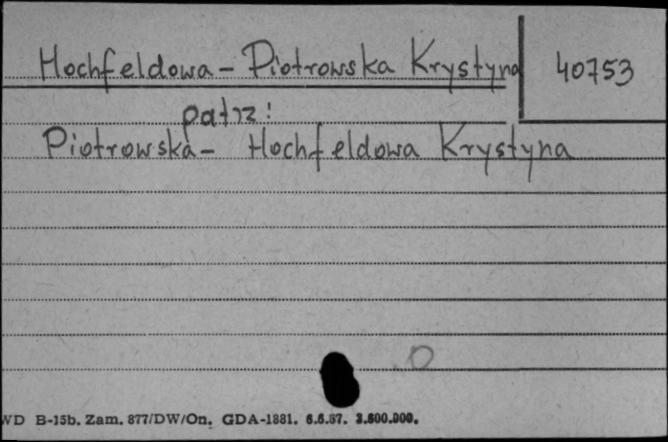 Hochfeldowa - Piotrowska Krystyna 40753
patrz:
Piotrowska - Hochfeldowa Krystyna
0
WD B-15b. Zam. 877/DW/On. GDA-1881. 6.6.67. 3.600.000.